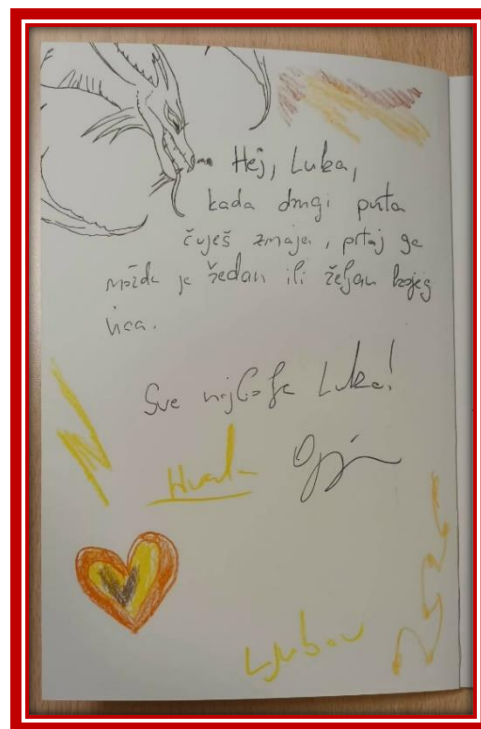 Hej, Luka,
kada drugi puta
čuješ zmaja, pitaj ga
možda je žedan ili željan kojeg
Sve najbolje Luka!
Hvala
Ljubav